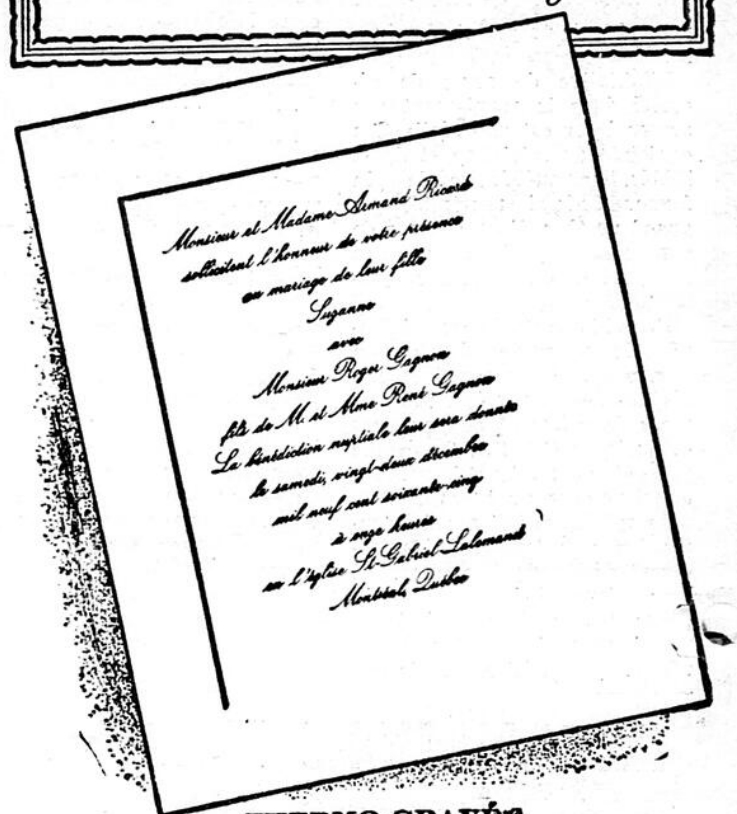 Monsieur et Madame Armand Ricard
sollicitent l'honneur de votre présence
au mariage de leur fille
Suzanne
avec
Monsieur Roger Gagnon
fils de M. et Mme René Gagnon
La bénédiction nuptiale leur sera donnée
le samedi, vingt-deux décembre
mil neuf cent soixante-cinq
à onze heures
en l'église St-Gabriel-Lalemand
Montréal, Québec